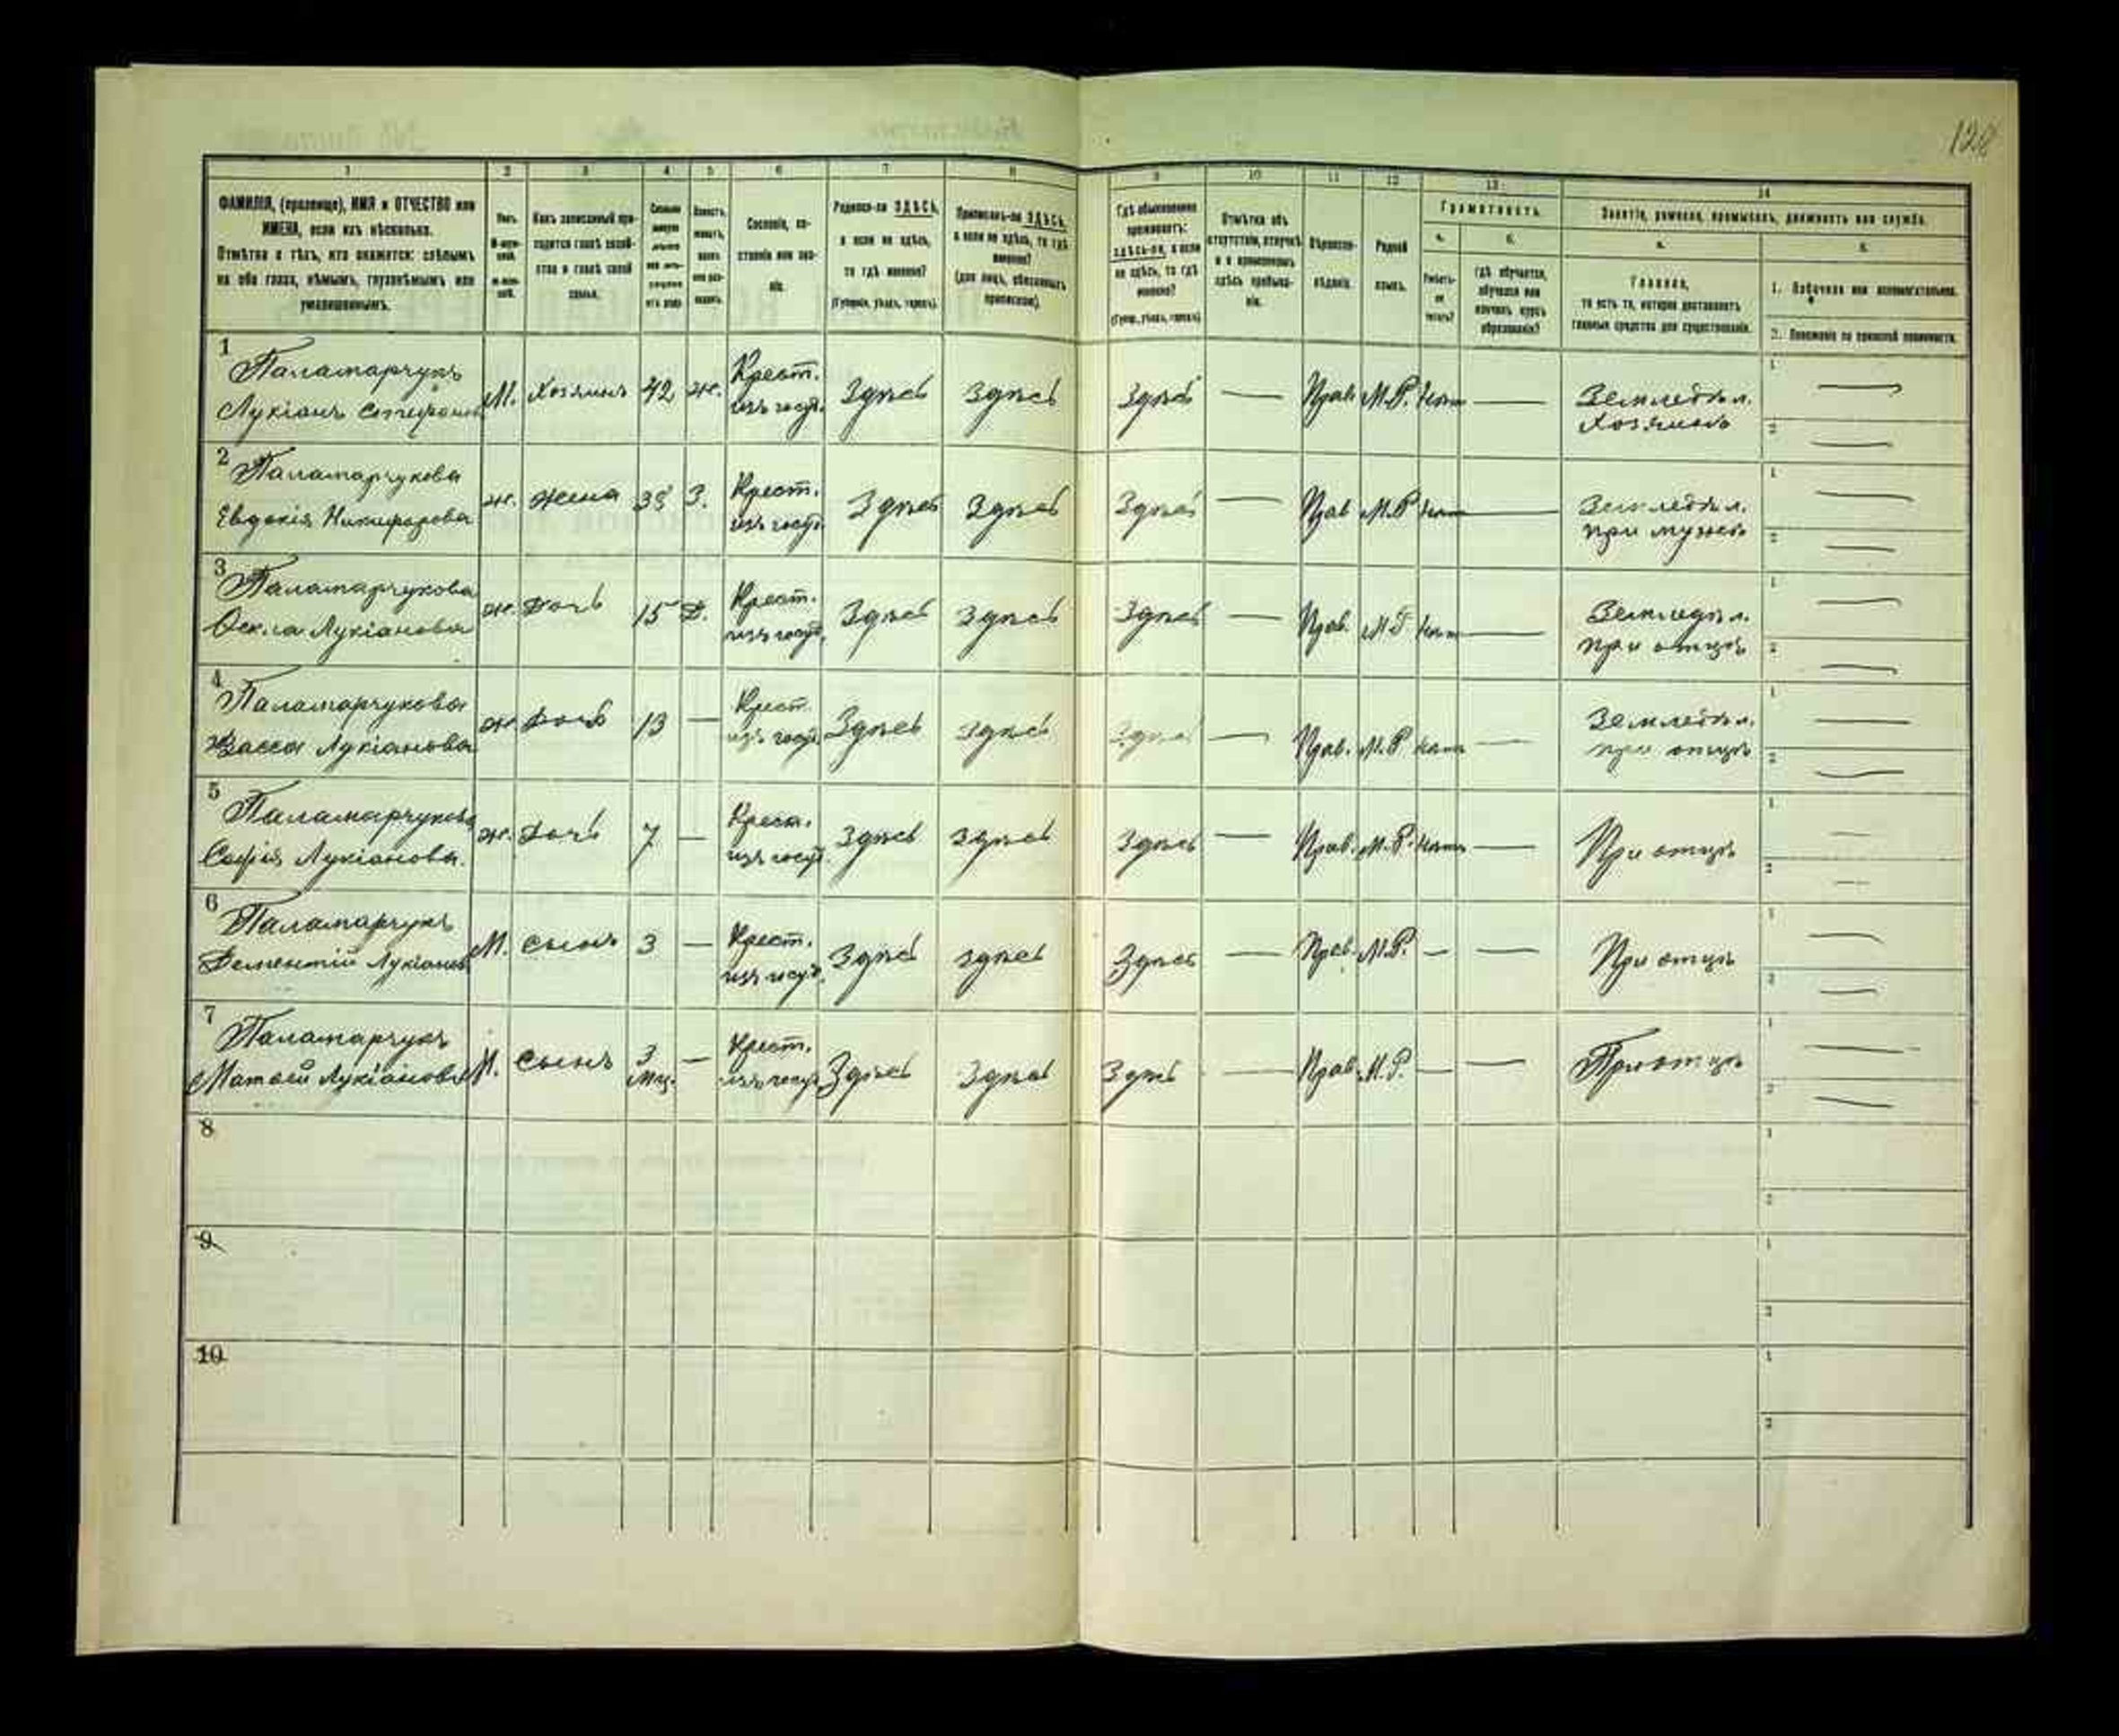 128
1 2 3 4 5 6 7 8 9 10 11 12 13 14
ФАМИЛІЯ, (прозвище), ИМЯ и ОТЧЕСТВО или
ИМЕНА, если ихъ нѣсколько.
Отмѣтка о тѣхъ, кто окажется: слѣпымъ
на оба глаза, нѣмымъ, глухонѣмымъ или
умалишеннымъ.
Полъ.
Какъ записанный при-
ходится главѣ хозяй-
ства и главѣ своей
семьи.
Сословіе, со-
стояніе или зва-
ніе.
Родился-ли ЗДѢСЬ,
а если не здѣсь,
то гдѣ именно?
(Губернія, уѣздъ, городъ).
Приписанъ-ли ЗДѢСЬ,
а если не здѣсь, то гдѣ
именно?
(для лицъ, обязанныхъ
припискою).
Гдѣ обыкновенно
проживаетъ:
здѣсь-ли, а если
не здѣсь, то гдѣ
именно?
(Губер., уѣздъ, городъ)
Отмѣтка объ
отсутствіи, отлучкѣ
и о временномъ
здѣсь пребыва-
ніи.
Вѣроиспо-
вѣданіе.
Родной
языкъ.
Грамотность.
а.
Умѣетъ-
ли
читать?
б.
гдѣ обучается,
обучался или
кончилъ курсъ
образованія?
Занятіе, ремесло, промыселъ, должность или служба.
а.
Главное,
то есть то, которое доставляетъ
главныя средства для существованія.
б.
1. Побочное или вспомогательное.
2. Положеніе по воинской повинности.
1 Паламарчукъ
Лукіанъ Стефановъ М. Хозяинъ 42 ж. Крест. изъ госуд. Здѣсь Здѣсь Здѣсь — Прав. М.Р. нѣтъ — Земледѣл. Хозяинъ 1 — 2 —
2 Паламарчукова
Евдокія Никифорова ж. жена 38 З. Крест. изъ госуд. Здѣсь Здѣсь Здѣсь — Прав М.Р нѣтъ — Земледѣл. при мужѣ 1 — 2 —
3 Паламарчукова
Лукіанова ж. Дочь 15 Д. Крест. изъ госуд. Здѣсь Здѣсь Здѣсь — Прав. М.Р нѣтъ — Земледѣл. при отцѣ 1 — 2 —
4 Паламарчукова
Васса Лукіанова ж. Дочь 13 — Крест. изъ госуд. Здѣсь Здѣсь Здѣсь — Прав. М.Р нѣтъ — Земледѣл. при отцѣ 1 — 2 —
5 Паламарчукова
Софія Лукіанова. ж. Дочь 7 — Крест. изъ госуд. Здѣсь Здѣсь Здѣсь — Прав. М.Р. нѣтъ — При отцѣ 1 — 2 —
6 Паламарчукъ
Дементій Лукіановъ М. сынъ 3 — Крест. изъ госуд. Здѣсь здѣсь Здѣсь — Прав. М.Р. — — При отцѣ 1 — 2 —
7 Паламарчукъ
Матѳей Лукіановъ М. сынъ 3 мц. — Крест. изъ госуд. Здѣсь Здѣсь Здѣсь — Прав. М.Р. — — При отцѣ 1 — 2 —
8 1 2
9 1 2
10 1 2